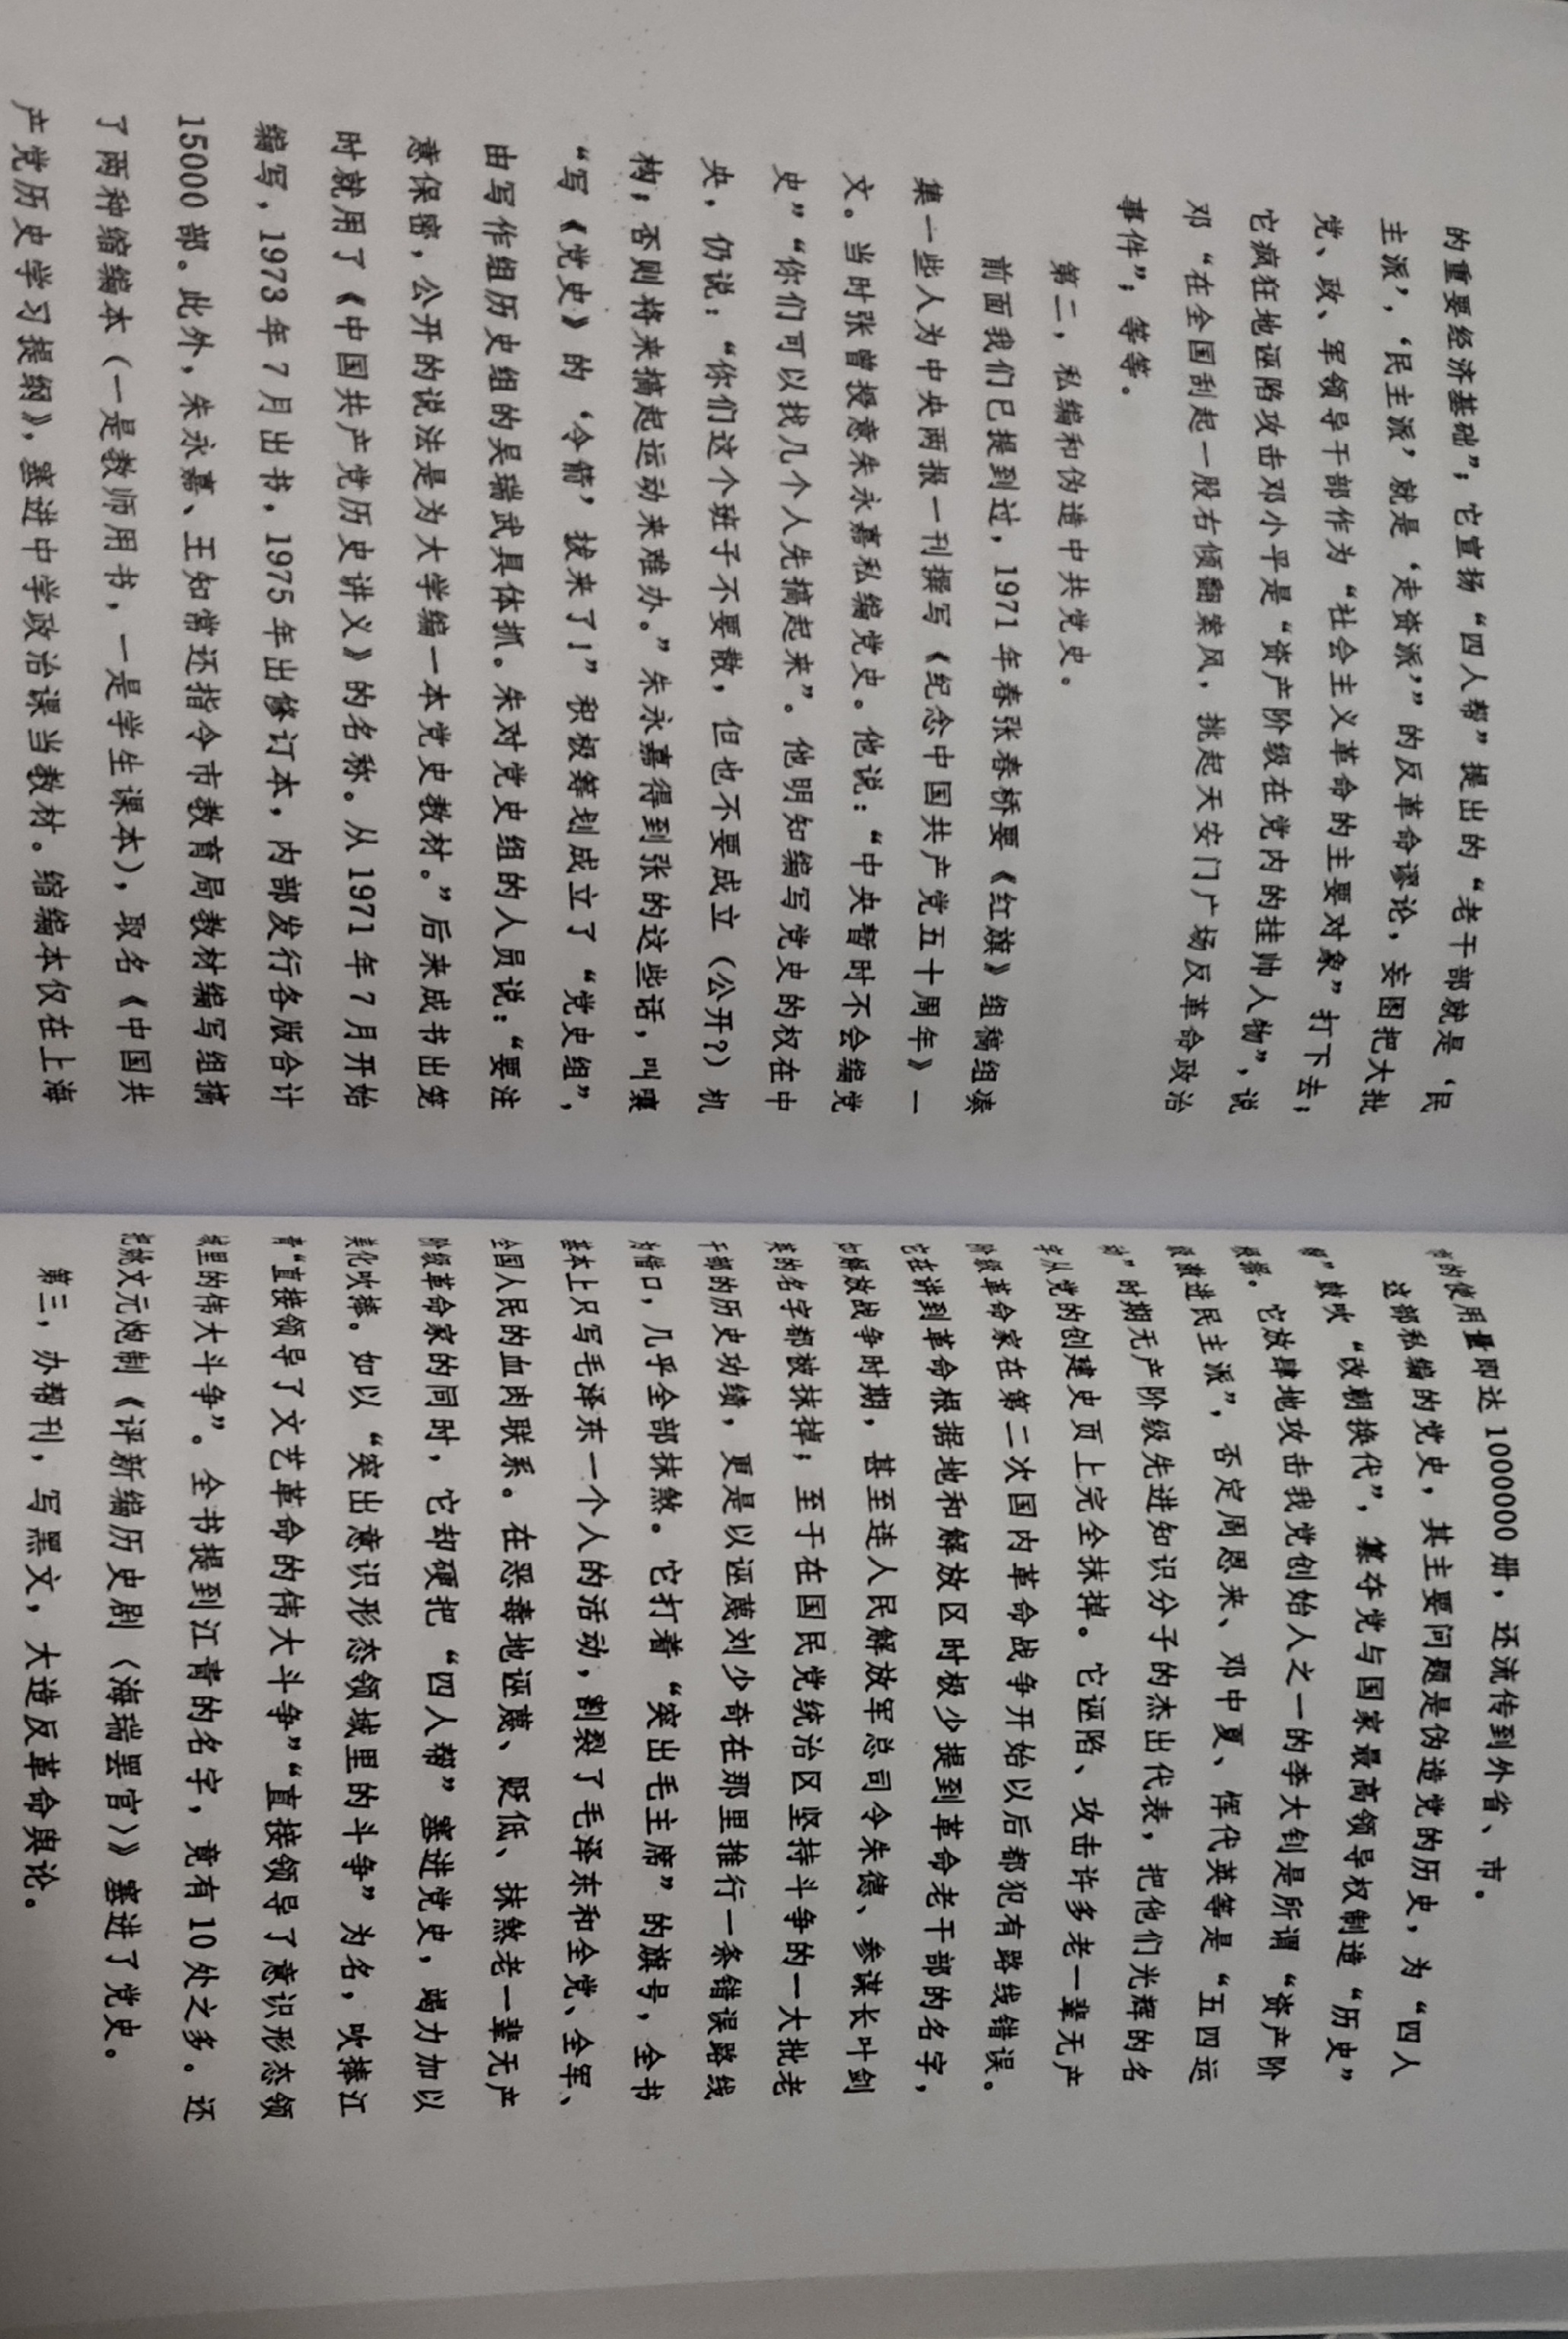 的重要经济基础”；它宣扬“四人帮”提出的“老干部就是‘民
主派’，‘民主派’就是‘走资派’”的反革命谬论，妄图把大批
党、政、军领导干部作为“社会主义革命的主要对象”打下去；
它疯狂地诬陷攻击邓小平是“资产阶级在党内的挂帅人物”，说
邓“在全国刮起一股右倾翻案风，挑起天安门广场反革命政治
事件”，等等。
第二，私编和伪造中共党史。
前面我们已提到过，1971年春张春桥要《红旗》组稿组凑
集一些人为中央两报一刊撰写《纪念中国共产党五十周年》一
文。当时张曾授意朱永嘉私编党史。他说：“中央暂时不会编党
史”“你们可以找几个人先搞起来”。他明知编写党史的权在中
央，仍说：“你们这个班子不要散，但也不要成立（公开？）机
构；否则将来搞起运动来难办。”朱永嘉得到张的这些话，叫嚷
“写《党史》的‘令箭’拔来了！”积极筹划成立了“党史组”，
由写作组历史组的吴瑞武具体抓。朱对党史组的人员说：“要注
意保密，公开的说法是为大学编一本党史教材。”后来成书出笼
时就用了《中国共产党历史讲义》的名称。从1971年7月开始
编写，1973年7月出书，1975年出修订本，内部发行各版合计
15000部。此外，朱永嘉、王知常还指令市教育局教材编写组搞
了两种缩编本（一是教师用书，一是学生课本），取名《中国共
产党历史学习提纲》，塞进中学政治课当教材。缩编本仅在上海
市的使用量即达1000000册，还流传到外省、市。
这部私编的党史，其主要问题是伪造党的历史，为“四人
帮”鼓吹“改朝换代”，篡夺党与国家最高领导权制造“历史”
根据。它放肆地攻击我党创始人之一的李大钊是所谓“资产阶
级激进民主派”，否定周恩来、邓中夏、恽代英等是“五四运
动”时期无产阶级先进知识分子的杰出代表，把他们光辉的名
字从党的创建史页上完全抹掉。它诬陷、攻击许多老一辈无产
阶级革命家在第二次国内革命战争开始以后都犯有路线错误。
它在讲到革命根据地和解放区时极少提到革命老干部的名字，
如解放战争时期，甚至连人民解放军总司令朱德、参谋长叶剑
英的名字都被抹掉；至于在国民党统治区坚持斗争的一大批老
干部的历史功绩，更是以诬蔑刘少奇在那里推行一条错误路线
为借口，几乎全部抹煞。它打着“突出毛主席”的旗号，全书
基本上只写毛泽东一个人的活动，割裂了毛泽东和全党、全军、
全国人民的血肉联系。在恶毒地诬蔑、贬低、抹煞老一辈无产
阶级革命家的同时，它却硬把“四人帮”塞进党史，竭力加以
美化吹捧。如以“突出意识形态领域里的斗争”为名，吹捧江
青“直接领导了文艺革命的伟大斗争”“直接领导了意识形态领
域里的伟大斗争”。全书提到江青的名字，竟有10处之多。还
把姚文元炮制《评新编历史剧〈海瑞罢官〉》塞进了党史。
第三，办帮刊，写黑文，大造反革命舆论。